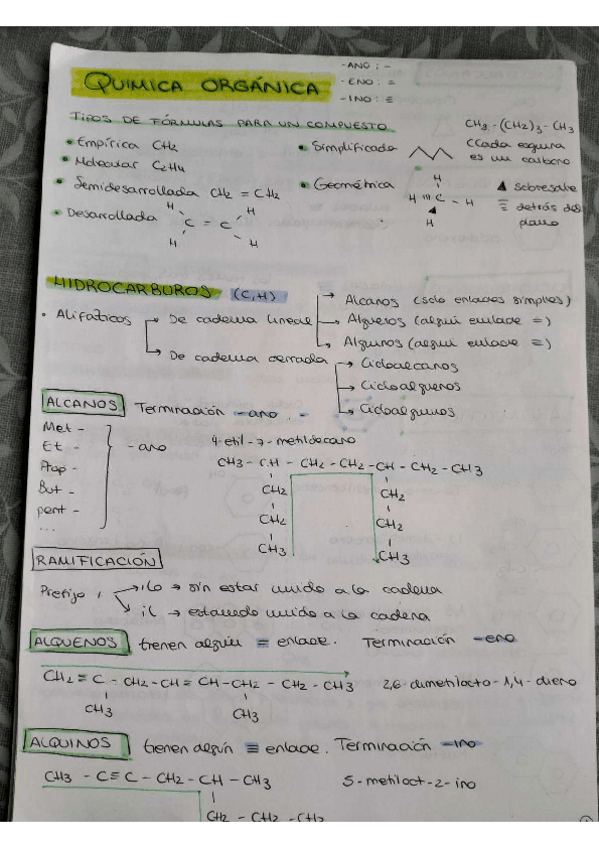 QUIMICA ORGÁNICA
- ANO : -
- ENO : =
- INO : ≡
TIPOS DE FÓRMULAS PARA UN COMPUESTO
• Empírica CH2
• Molecular C2H4
• Semidesarrollada CH2 = CH2
• Desarrollada
H H
C = C
H H
• Simplificada
CH3 - (CH2)3 - CH3
(Cada esquina
es un carbono
• Geométrica
H
H ''' C - H
H
sobresale
detrás del
plano
HIDROCARBUROS (C,H)
• Alifáticos
De cadena lineal
Alcanos (solo enlaces simples)
Alquenos (algún enlace =)
Alquinos (algún enlace =)
De cadena cerrada
Cicloalcanos
Cicloalquenos
Cicloalquinos
ALCANOS Terminación -ano -
Met -
Et -
Prop -
But -
pent -
...
- ano
4-etil-7-metildecano
CH3 - CH - CH2 - CH2 - CH - CH2 - CH3
CH2 CH2
CH2 CH2
CH3 CH3
RAMIFICACIÓN
Prefijo
ilo → sin estar unido a la cadena
il → estando unido a la cadena
ALQUENOS tienen algún = enlace. Terminación -eno
CH2 = C - CH2 - CH = CH - CH2 - CH2 - CH3 2,6-dimetilocto-1,4-dieno
CH3 CH3
ALQUINOS tienen algún ≡ enlace. Terminación -ino
CH3 - C ≡ C - CH2 - CH - CH3 5-metiloct-2-ino
CH2 - CH2 - CH3